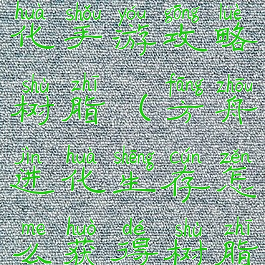 huà shǒu yóu gōng lüè
化手游攻略
shù zhī fāng zhōu
树脂(方舟
jìn huà shēng cún zěn
进化生存怎
me huò dé shù zhī
么获得树脂